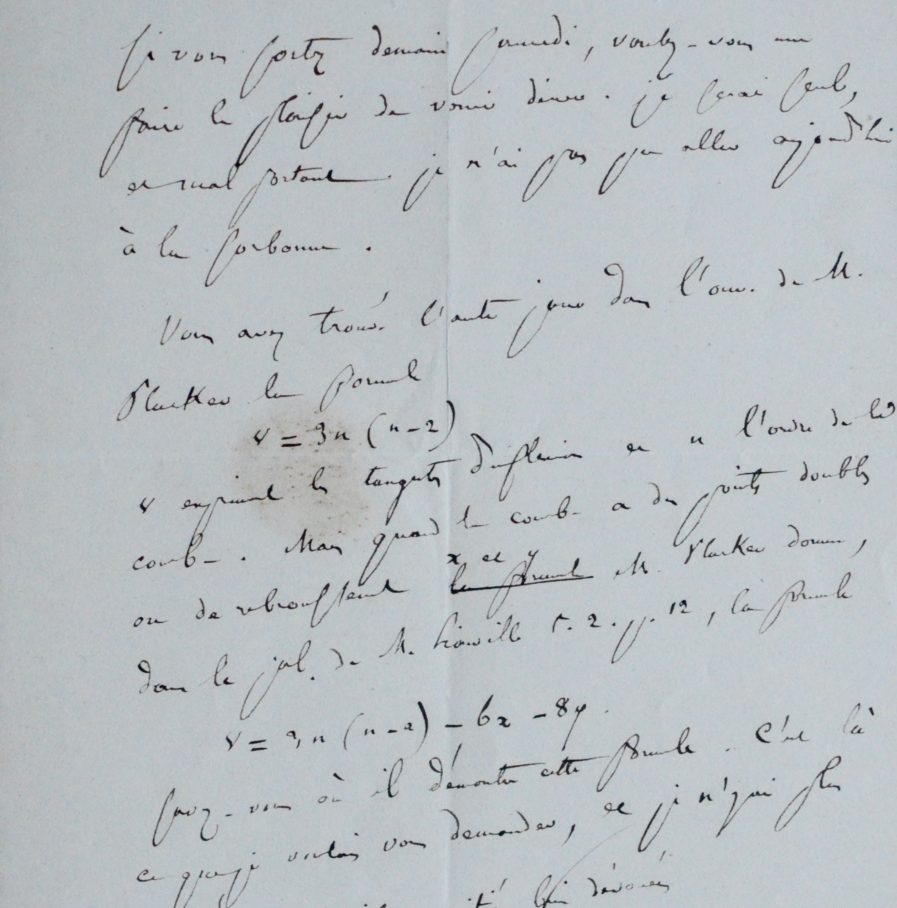 Si vous sortez demain samedi, voulez-vous me
faire le plaisir de venir diner. je serai seul,
et mal portant. je n'ai pas pu aller aujourd'hui
à la Sorbonne.
Vous avez trouvé l'autre jour dans l'ouv. de M.
Plucker la formule
v = 3n (n-2)
v exprimant les tangentes d'inflexion et n l'ordre de la
courbe. Mais quand la courbe a des points doubles
ou de rebroussement x et y la formule M. Plucker donne,
dans le jal. de M. Liouville t. 2. p. 12, la formule
v = 3n (n-2) - 6x - 8y.
Savez-vous où il démontre cette formule. C'est là
ce que je voulais vous demander, et je n'ai plus
bien dévoué